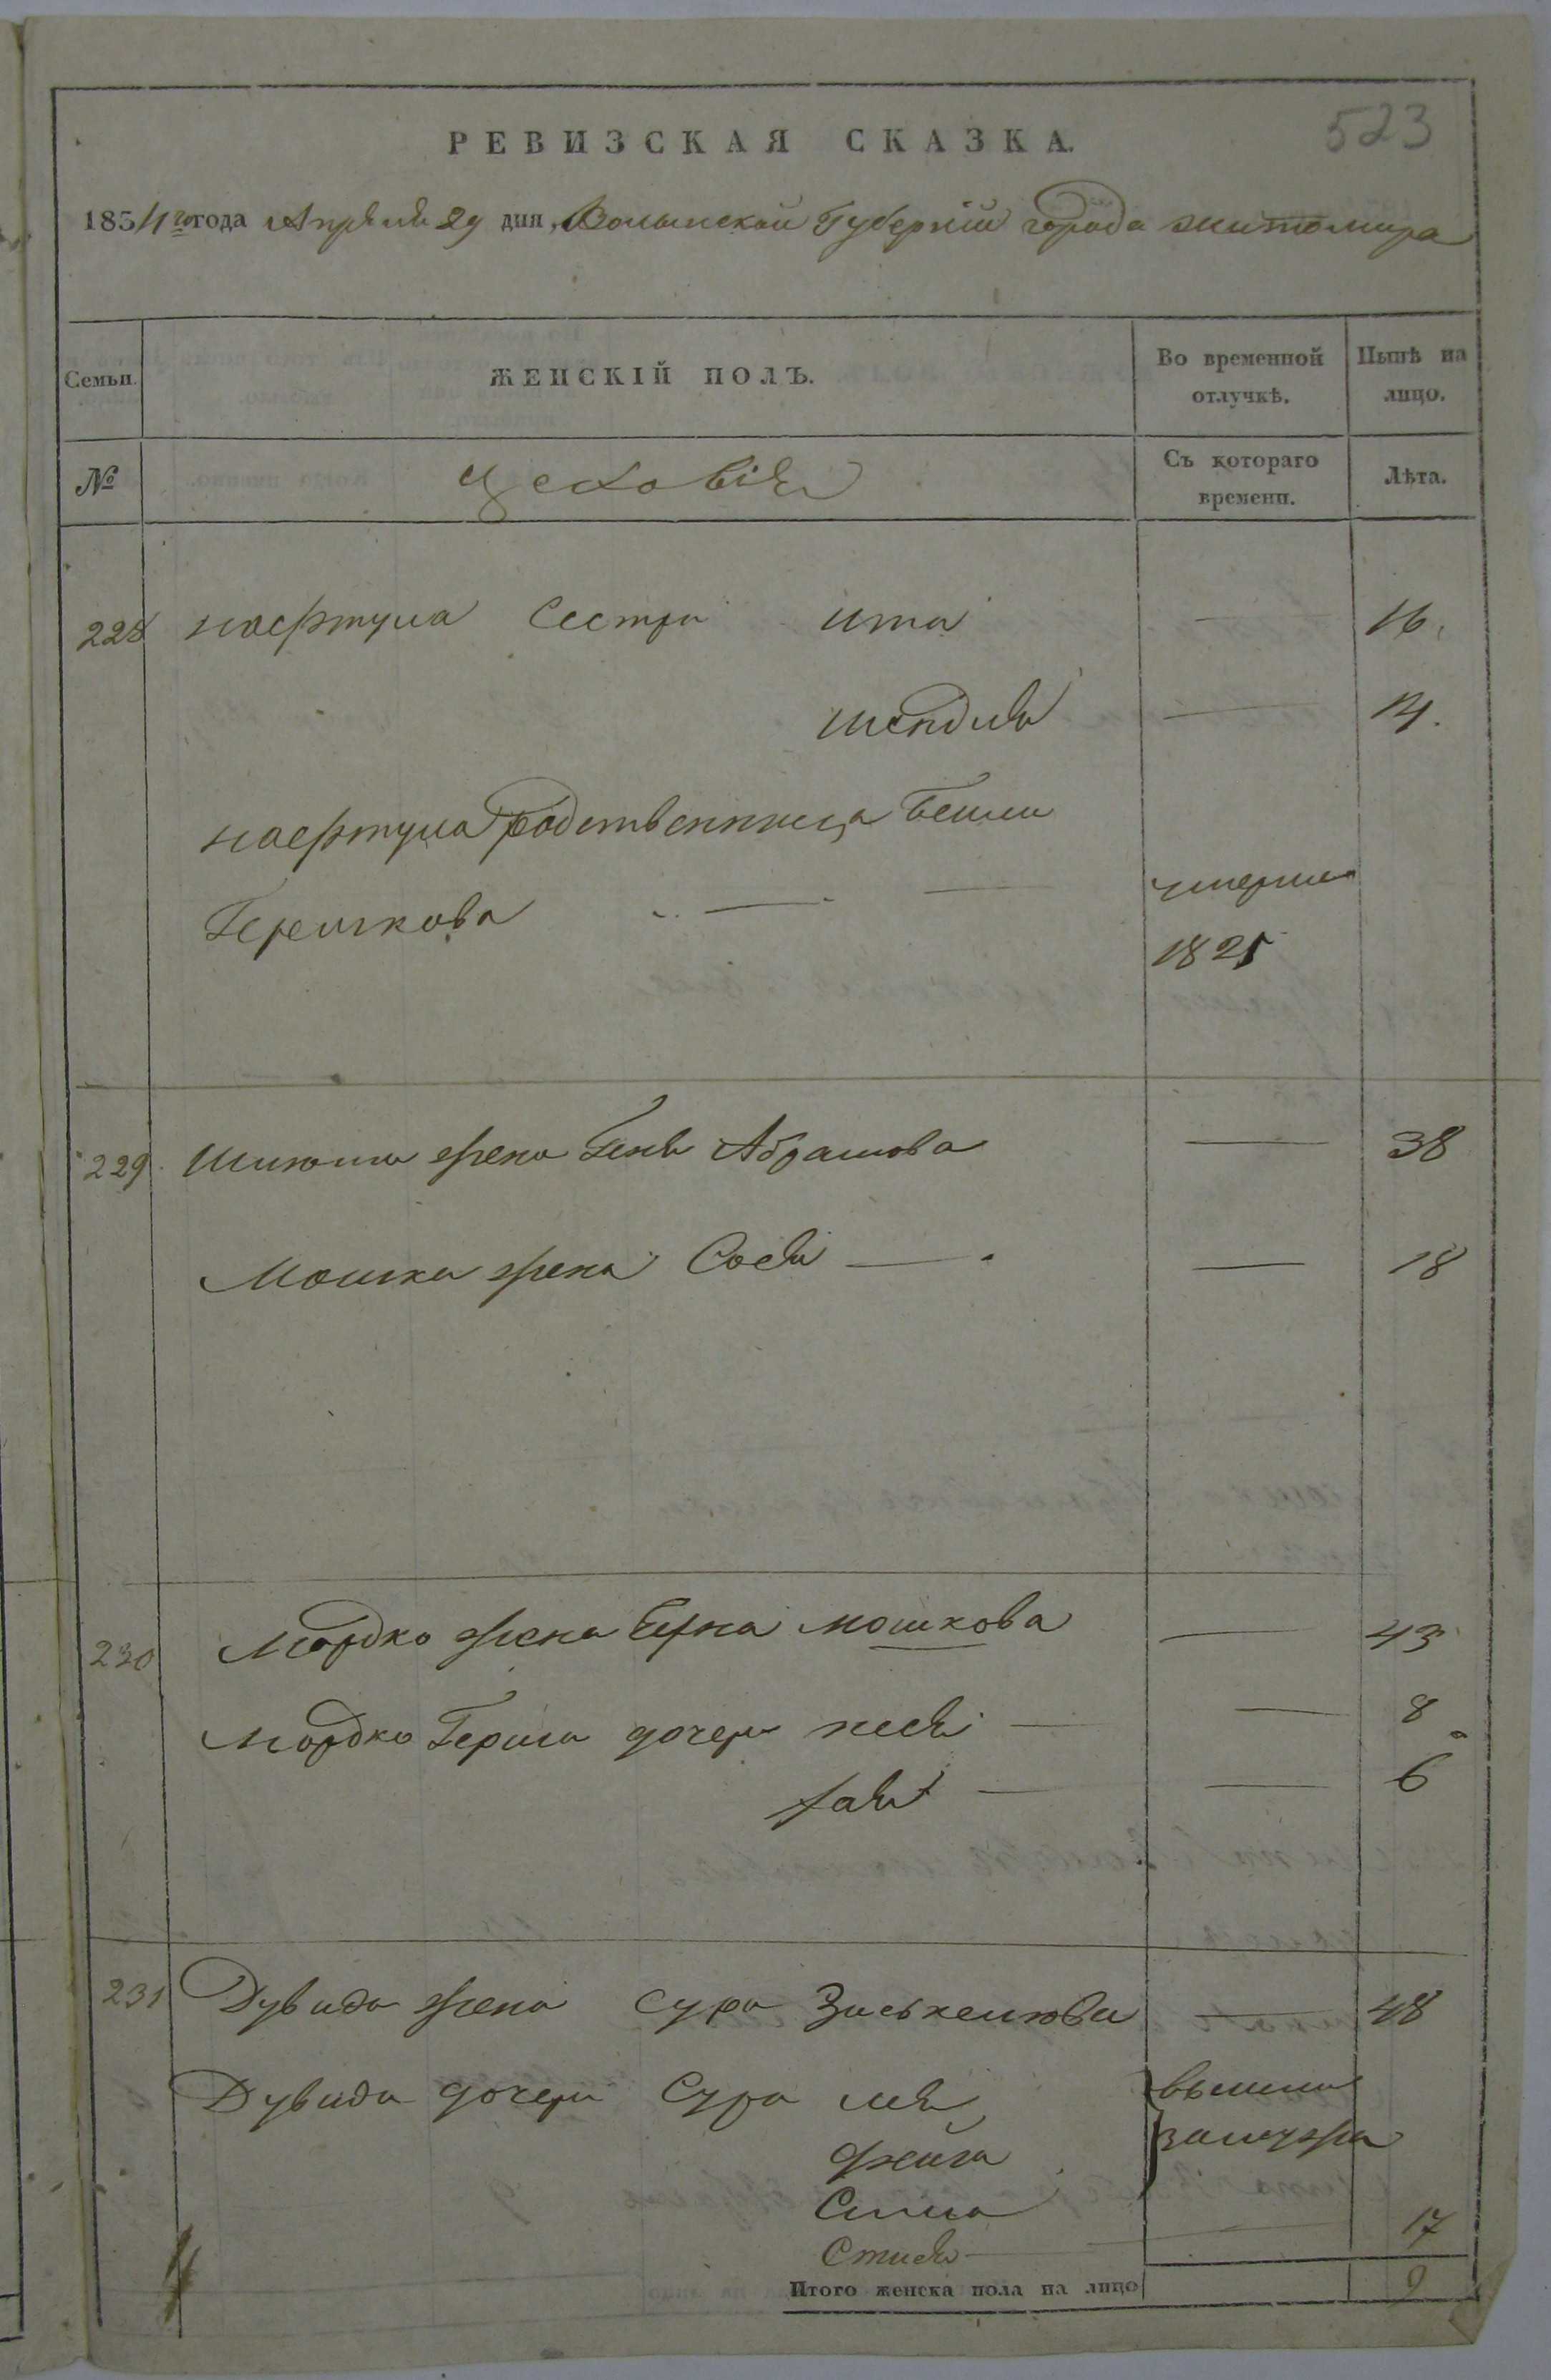 523
РЕВИЗСКАЯ СКАЗКА.
1854 го года Апреля 29 дня, Волынской Губерніи города житомира
Семьи. ЖЕНСКІЙ ПОЛЪ. Во временной отлучкѣ. Нынѣ на лицо.
№ Цеховія Съ котораго времени. Лѣта.
228 нафтула Сестри ита — 16.
шендля — 14.
нафтула родственница Бейли
Гершкова — — умерла
1821
229. жена Геня Абрамова — 38
Мошка жена Сося — — 18
230 Мордко жена Черна мошкова — 43
Мордко Герша дочери песя — — 8
хая — — 6
231 Дувида жена сура Заськелюва — 48
Дувида дочери Сура лея вышли
фейга замужъ
Симa
Стися — — 17
Итого женска пола на лицо 9